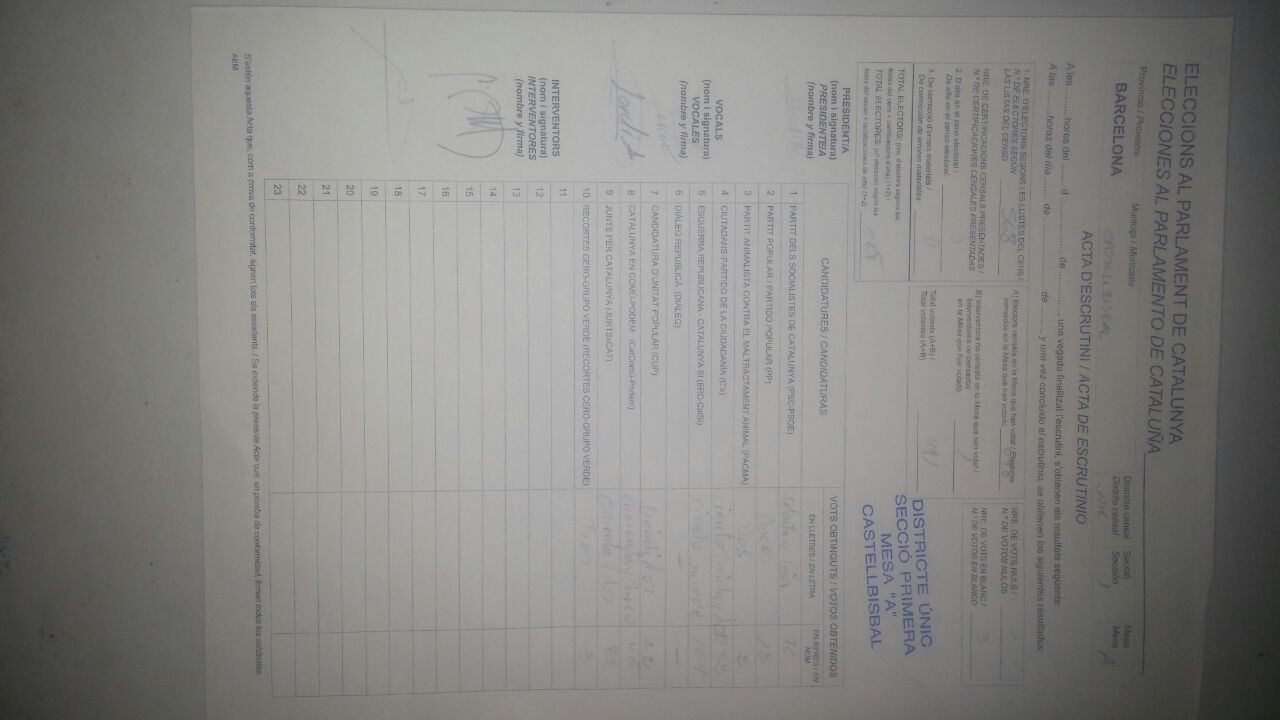 ELECCIONS AL PARLAMENT DE CATALUNYA
ELECCIONES AL PARLAMENTO DE CATALUÑA
Província / Provincia
BARCELONA
Municipi / Municipio
CASTELLBISBAL
Districte censal
Distrito censal
Secció
Sección
1
Mesa
Mesa
A
ACTA D'ESCRUTINI / ACTA DE ESCRUTINIO
A les ........ hores del ........ d ........ de ........, una vegada finalitzat l'escrutini, s'obtenen els resultats següents:
A las ........ horas del día ........ de ........ de ........, y una vez concluido el escrutinio, se obtienen los siguientes resultados:
1. NRE. D'ELECTORS SEGONS LES LLISTES DEL CENS /
N.º DE ELECTORES SEGÚN
LAS LISTAS DEL CENSO 568
NRE. DE CERTIFICACIONS CENSALS PRESENTADES /
N.º DE CERTIFICACIONES CENSALES PRESENTADAS
2. D'alta en el cens electoral /
De alta en el censo electoral:
3. De correcció d'errors materials /
De corrección de errores materiales: 0
TOTAL ELECTORS: (nre. d'electors segons les
llistes del cens + certificacions d'alta) (1+2) /
TOTAL ELECTORES: (nº electores según las
listas del censo + certificaciones de alta) (1+2)
A) Electors censats en la Mesa que han votat / Electores
censados en la Mesa que han votado
B) Interventors no censats en la Mesa que han votat /
Interventores no censados
en la Mesa que han votado
Total votants (A+B) /
Total votantes (A+B)
NRE. DE VOTS NULS /
N.º DE VOTOS NULOS
NRE. DE VOTS EN BLANC /
N.º DE VOTOS EN BLANCO
DISTRICTE ÚNIC
SECCIÓ PRIMERA
MESA "A"
CASTELLBISBAL
PRESIDENT/A
(nom i signatura)
PRESIDENTE/A
(nombre y firma)
VOCALS
(nom i signatura)
VOCALES
(nombre y firma)
INTERVENTORS
(nom i signatura)
INTERVENTORES
(nombre y firma)
CANDIDATURES / CANDIDATURAS
VOTS OBTINGUTS / VOTOS OBTENIDOS
EN LLETRES / EN LETRA
EN XIFRES / EN NÚM.
1 PARTIT DELS SOCIALISTES DE CATALUNYA (PSC-PSOE)
2 PARTIT POPULAR / PARTIDO POPULAR (PP) Doce 12
3 PARTIT ANIMALISTA CONTRA EL MALTRACTAMENT ANIMAL (PACMA) Dos 2
4 CIUTADANS-PARTIDO DE LA CIUDADANÍA (C's)
5 ESQUERRA REPUBLICANA - CATALUNYA SÍ (ERC-CatSí) ciento nueve 109
6 DIÀLEG REPUBLICÀ (DIÀLEG) - -
7 CANDIDATURA D'UNITAT POPULAR (CUP) Veintidos 22
8 CATALUNYA EN COMÚ-PODEM (CatComú-Podem)
9 JUNTS PER CATALUNYA (JUNTSxCAT)
10 RECORTES CERO-GRUPO VERDE (RECORTES CERO-GRUPO VERDE) Tres 3
11
12
13
14
15
16
17
18
19
20
21
22
23
S'estén aquesta Acta que, com a prova de conformitat, signen tots els assistents. / Se extiende la presente Acta que, en prueba de conformidad, firman todos los asistentes.
AEM